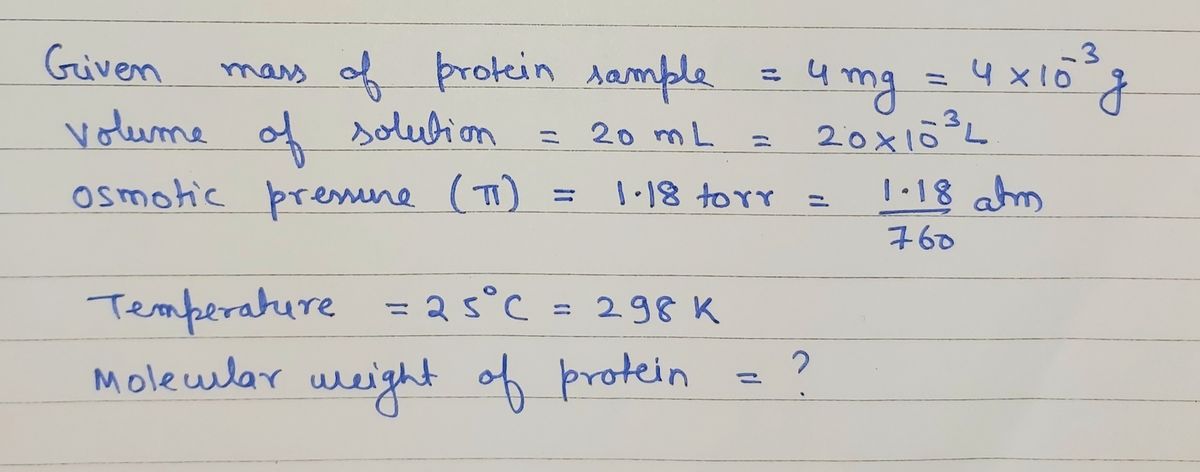 Given mass of protein sample = 4 mg = 4 × 10⁻³ g
volume of solution = 20 mL = 20 × 10⁻³ L
osmotic pressure (π) = 1.18 torr = 1.18 atm
760
Temperature = 25°C = 298 K
Molecular weight of protein = ?